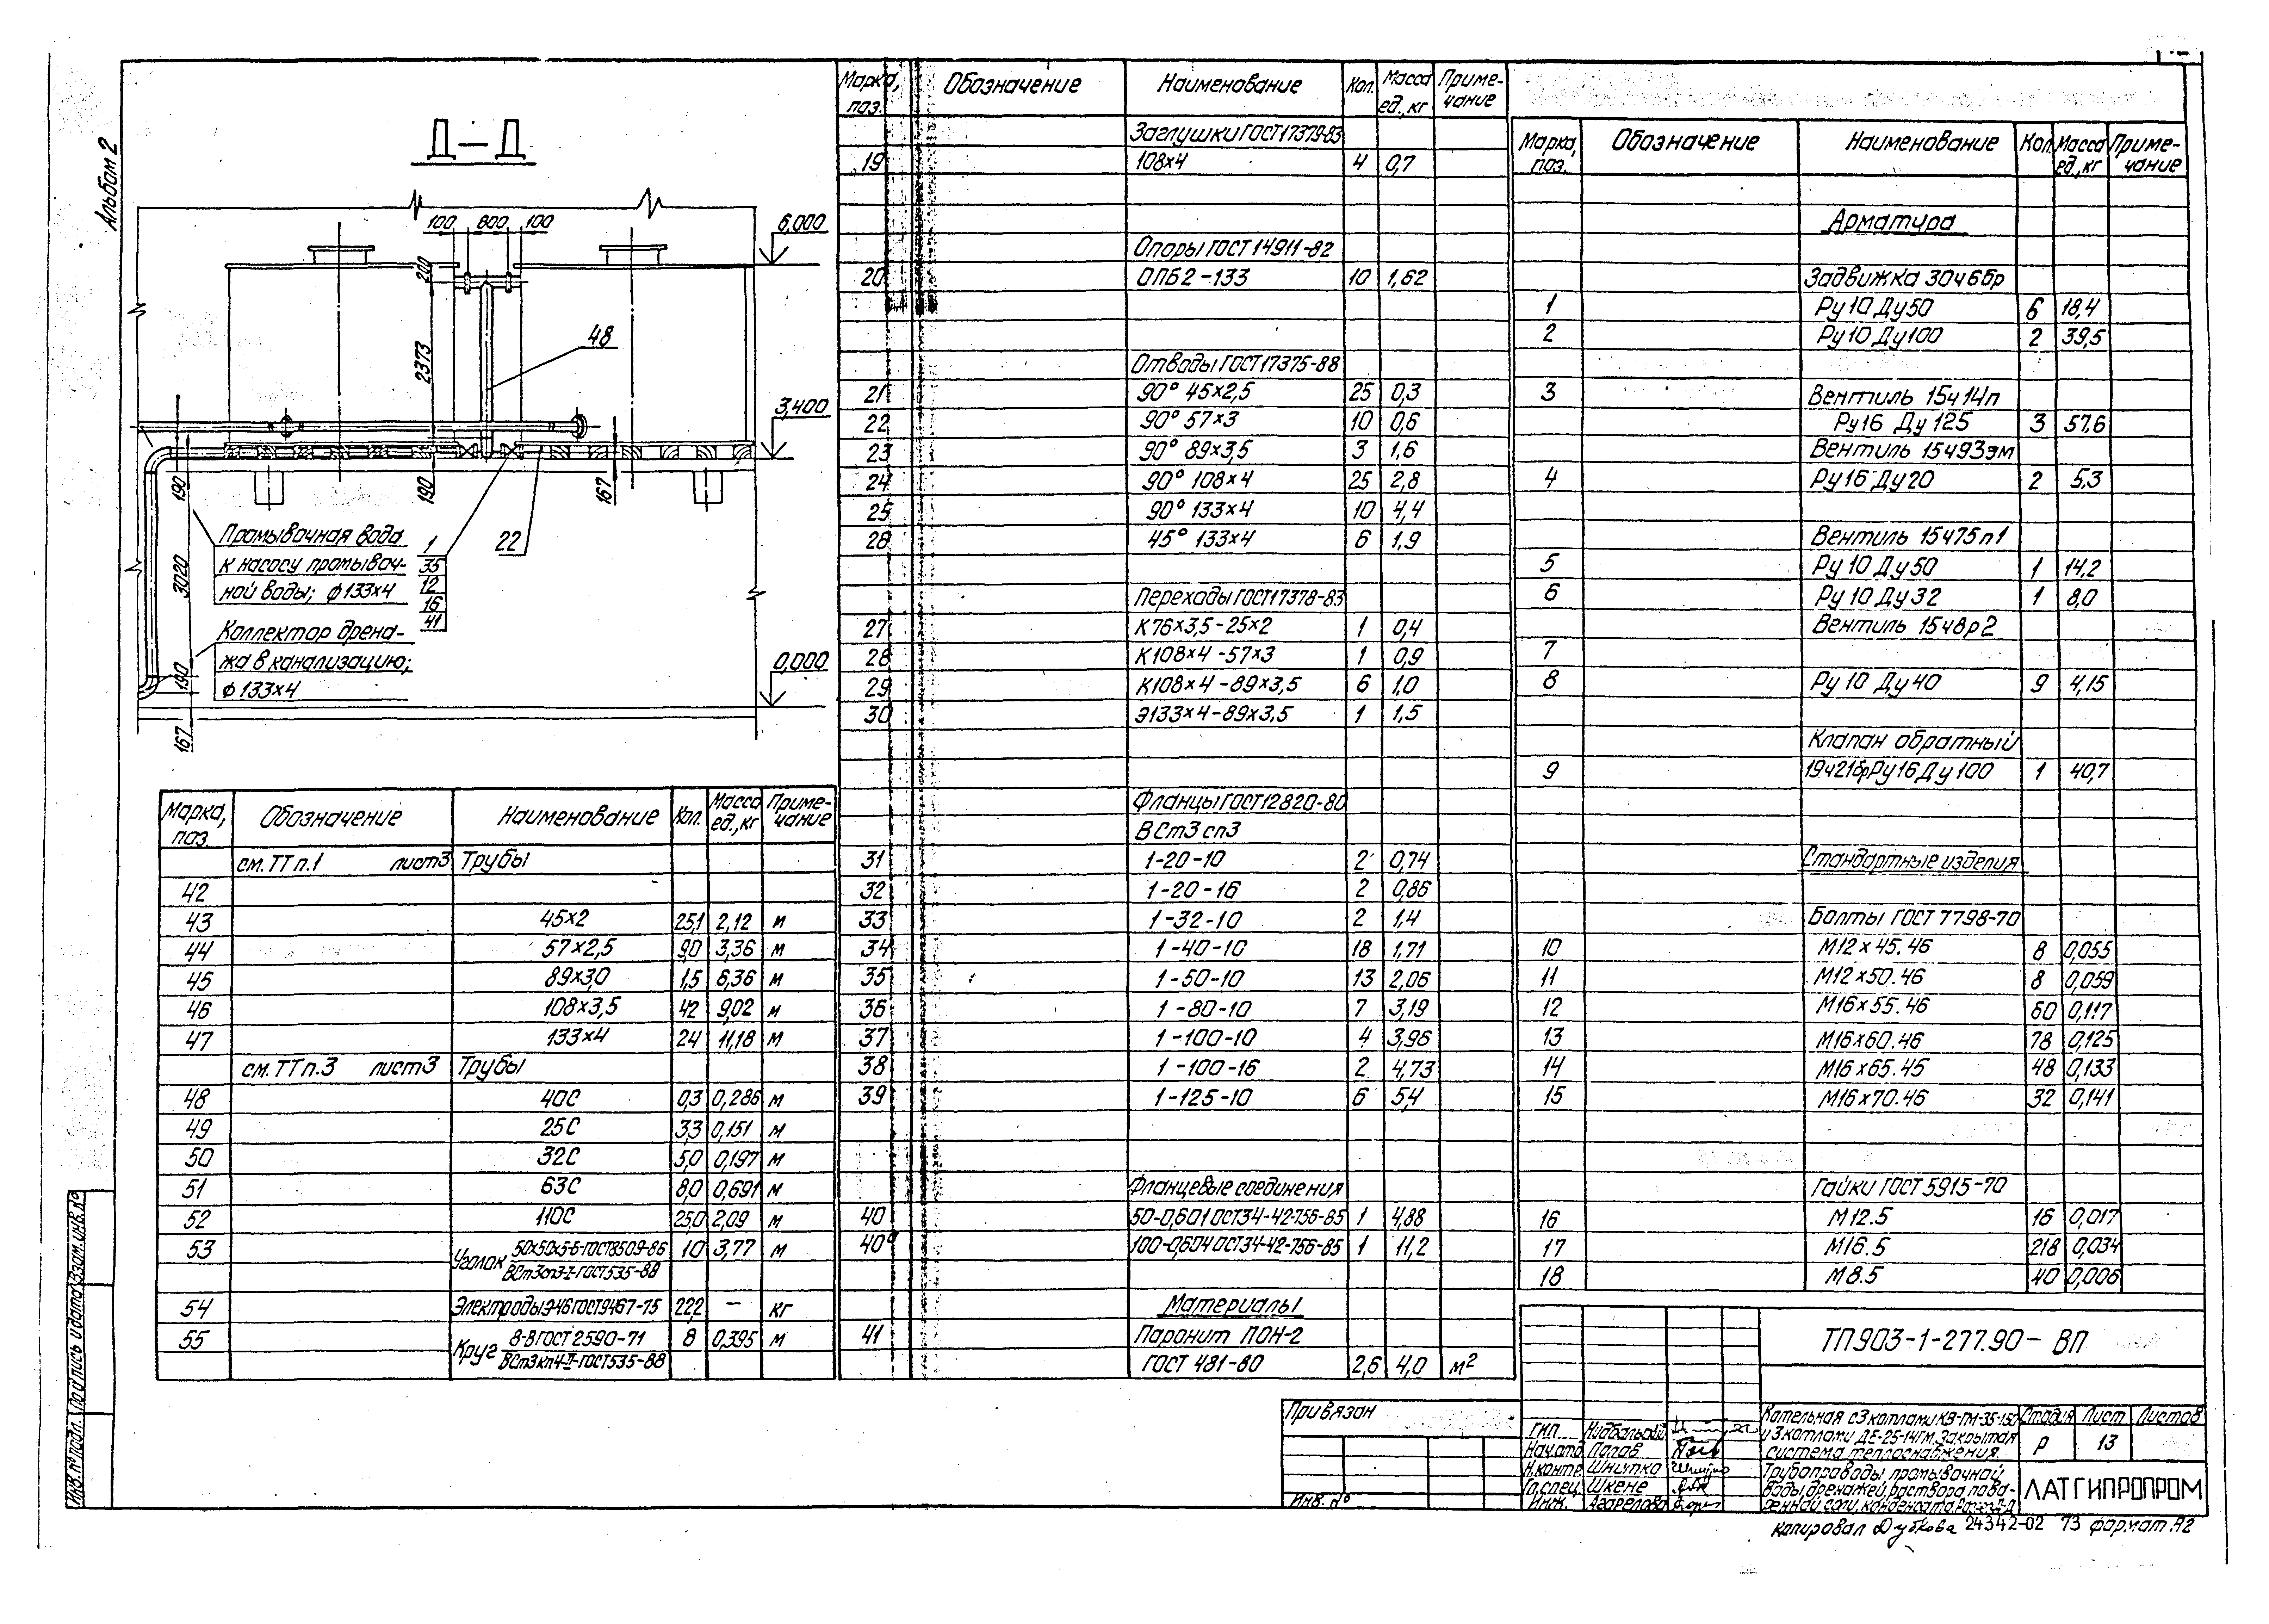 Альбом 2
Д — Д
100 800 100
6,000
200
2373
48
3,400
190
190
167
22
Промывочная вода
к насосу промывоч-
ной воды; ф133×4
1
35
12
16
41
3020
Коллектор дрена-
жа в канализацию;
ф133×4
190
167
0,000
Марка, поз. Обозначение Наименование Кол. Масса ед., кг Приме-чание
см. ТТ п.1 лист3 Трубы
42
43 45×2 25,1 2,12 м
44 57×2,5 9,0 3,36 м
45 89×3,0 1,5 6,36 м
46 108×3,5 42 9,02 м
47 133×4 24 11,18 м
см. ТТ п.3 лист3 Трубы
48 40С 0,3 0,286 м
49 25С 3,3 0,151 м
50 32С 5,0 0,197 м
51 63С 8,0 0,691 м
52 110С 25,0 2,09 м
53 Уголок 50×50×5-Б-ГОСТ8509-86 10 3,77 м
ВСт3сп3-I-ГОСТ535-88
54 Электроды Э46 ГОСТ9467-75 22,2 — кг
55 Круг 8-В ГОСТ 2590-71 8 0,395 м
ВСт3кп4-II-ГОСТ535-88
Марка, поз. Обозначение Наименование Кол. Масса ед., кг Приме-чание
Заглушки ГОСТ17379-83
19 108×4 4 0,7
Опоры ГОСТ 14911-82
20 ОПБ2-133 10 1,62
Отводы ГОСТ17375-88
21 90° 45×2,5 25 0,3
22 90° 57×3 10 0,6
23 90° 89×3,5 3 1,6
24 90° 108×4 25 2,8
25 90° 133×4 10 4,4
26 45° 133×4 6 1,9
Переходы ГОСТ17378-83
27 К76×3,5-25×2 1 0,4
28 К108×4-57×3 1 0,9
29 К108×4-89×3,5 6 1,0
30 Э133×4-89×3,5 1 1,5
Фланцы ГОСТ12820-80
ВСт3сп3
31 1-20-10 2 0,74
32 1-20-16 2 0,86
33 1-32-10 2 1,4
34 1-40-10 18 1,71
35 1-50-10 13 2,06
36 1-80-10 7 3,19
37 1-100-10 4 3,96
38 1-100-16 2 4,73
39 1-125-10 6 5,4
Фланцевые соединения
40 50-0,6 01 ОСТ34-42-756-85 1 4,88
40ª 100-0,6 04 ОСТ34-42-756-85 1 11,2
Материалы
41 Паронит ПОН-2
ГОСТ 481-80 2,6 4,0 м²
Марка, поз. Обозначение Наименование Кол. Масса ед., кг Приме-чание
Арматура
Задвижка 30ч6бр
1 Ру10 Ду50 6 18,4
2 Ру10 Ду100 2 39,5
3 Вентиль 15ч14п
Ру16 Ду125 3 57,6
Вентиль 15ч93эм
4 Ру16 Ду20 2 5,3
Вентиль 15ч75п1
5 Ру10 Ду50 1 14,2
6 Ру10 Ду32 1 8,0
Вентиль 15ч8р2
7
8 Ру10 Ду40 9 4,15
Клапан обратный
9 19ч21бр Ру16 Ду100 1 40,7
Стандартные изделия
Болты ГОСТ 7798-70
10 М12×45.46 8 0,055
11 М12×50.46 8 0,059
12 М16×55.46 60 0,117
13 М16×60.46 78 0,125
14 М16×65.45 48 0,133
15 М16×70.46 32 0,141
Гайки ГОСТ 5915-70
16 М12.5 16 0,017
17 М16.5 218 0,034
18 М8.5 40 0,006
ТП903-1-277.90-ВП
Привязан
Инв. №
ГИП Нидбальский
Нач.отд Попов
Н.контр. Шнипко
Гл.спец. Шкене
Инж. Агарелова
Котельная с 3 котлами КВ-ГМ-35-150
и 3 котлами ДЕ-25-14ГМ. Закрытая
система теплоснабжения.
Стадия Лист Листов
Р 13
Трубопроводы промывочной
воды, дренажей, раствора пова-
ренной соли, конденсата.
ЛАТГИПРОПРОМ
Копировал Дубкова 24342-02 73 формат А2
Инв. № подл. Подпись и дата Взам. инв. №